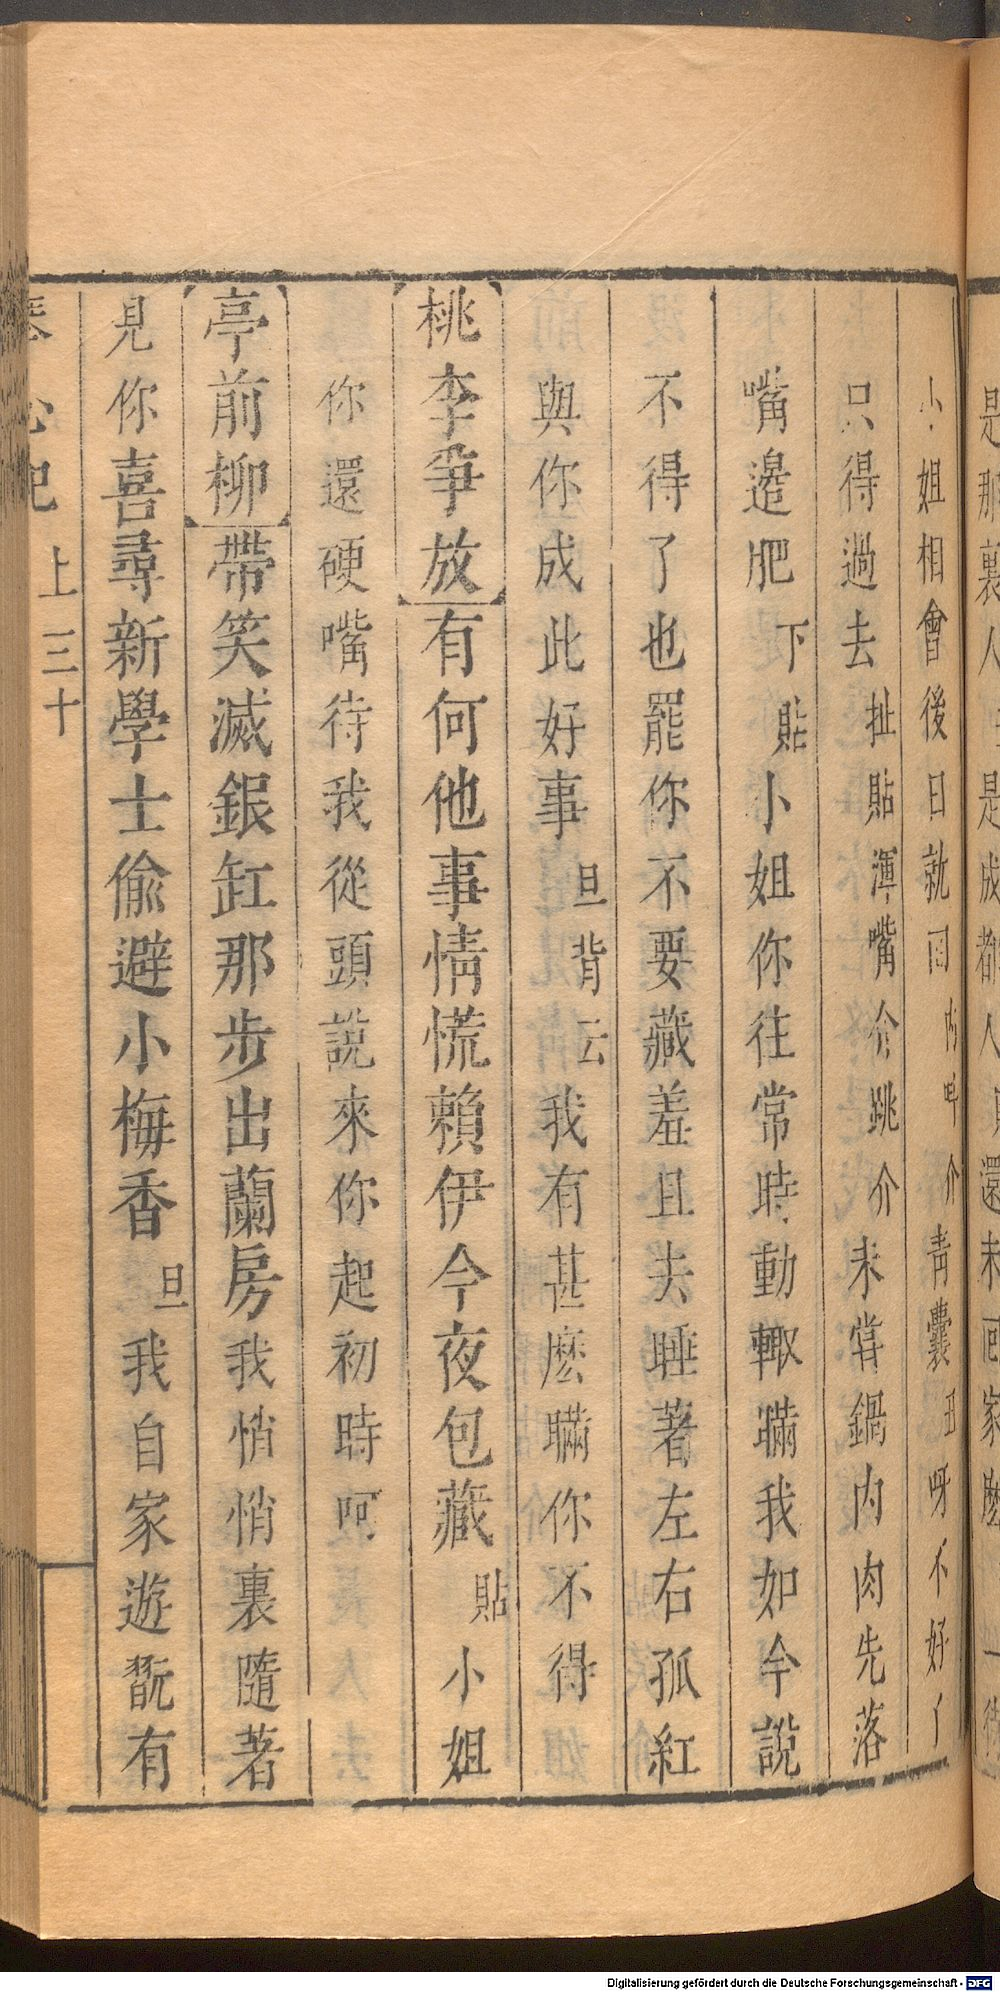 小姐相會後日就回內呌介靑囊丑呀不好了
只得過去扯貼渾嘴介跳介未嘗鍋內肉先落
嘴邊肥下貼小姐你往常時動輙瞞我如今說
不得了也罷你不要藏羞且去睡著左右孤紅
與你成此好事旦背云我有甚麽瞞你不得
桃李爭放有何他事情慌賴伊今夜包藏貼小姐
你還硬嘴待我從頭說來你起初時呵
亭前柳帶笑滅銀缸那步出蘭房我悄悄裏隨著
見你喜尋新學士偷避小梅香旦我自家遊翫有
上三十
Digitalisierung gefördert durch die Deutsche Forschungsgemeinschaft - DFG